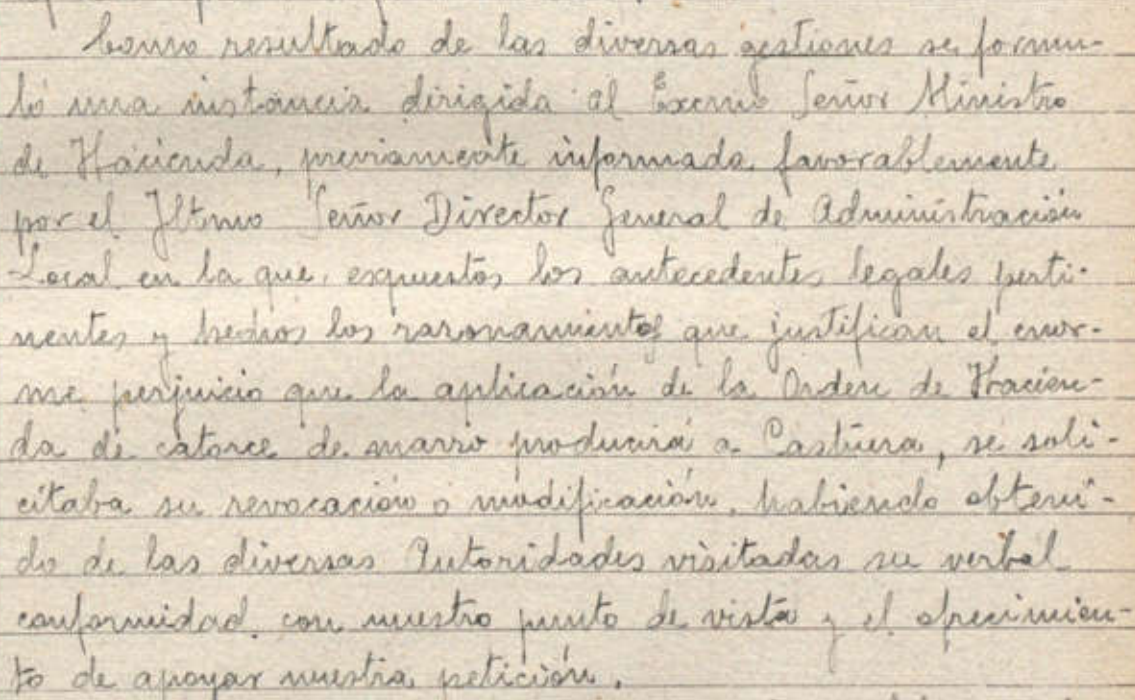 Como resultado de las diversas gestiones se formu-
ló una instancia dirigida al Excmo Señor Ministro
de Hacienda, previamente informada favorablemente
por el Iltmo Señor Director General de Administración
Local en la que, expuestos los antecedentes legales perti-
nentes y hechos los razonamientos que justifican el enor-
me perjuicio que la aplicación de la Orden de Hacien-
da de catorce de marzo producirá a Castuera, se soli-
citaba su revocación o modificación, habiendo obteni-
do de las diversas Autoridades visitadas su verbal
conformidad con nuestro punto de vista y el ofrecimien-
to de apoyar nuestra petición.